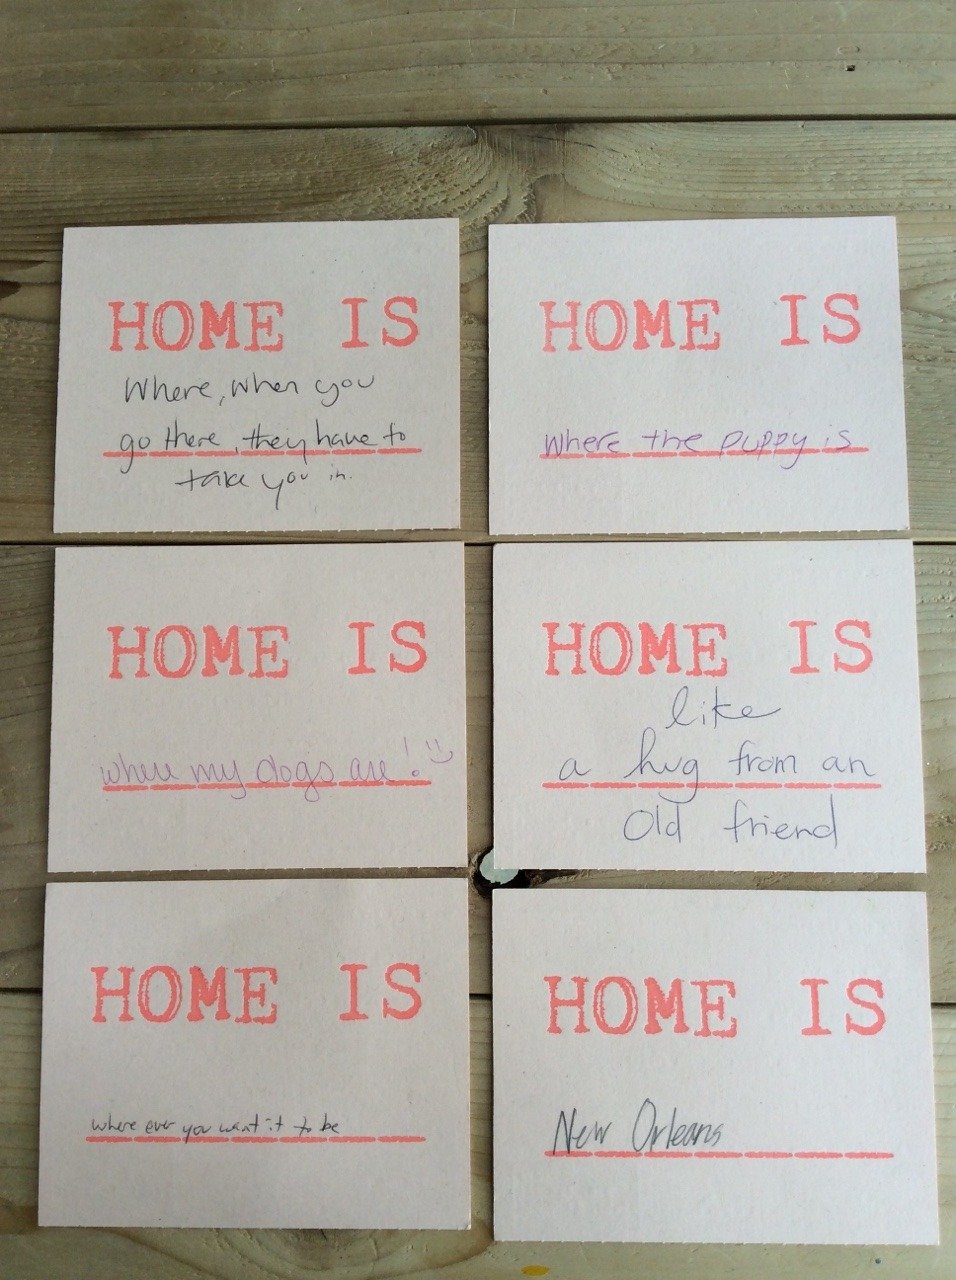 HOME IS
Where, when you
go there, they have to
take you in.
HOME IS
where the puppy is
HOME IS
where my dogs are! :)
HOME IS
like
a hug from an
old friend
HOME IS
where ever you want it to be
HOME IS
New Orleans